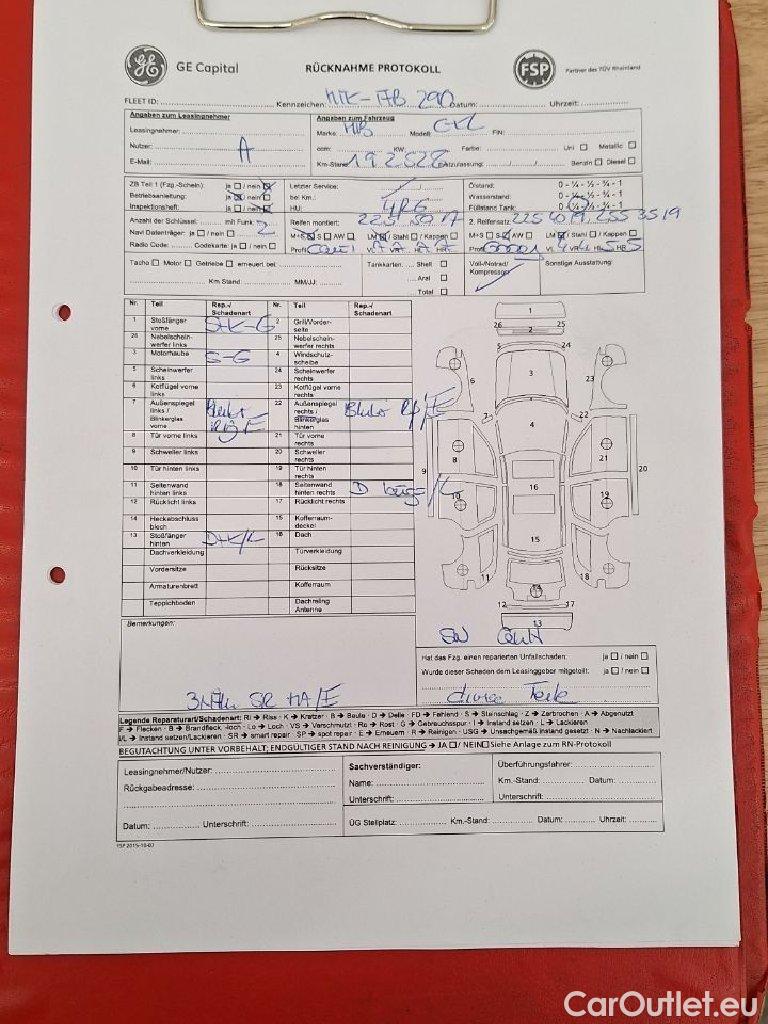 GE Capital
RÜCKNAHME PROTOKOLL
FSP
Partner des TÜV Rheinland
FLEET ID: Kennzeichen: Datum: Uhrzeit:
Angaben zum Leasingnehmer
Angaben zum Fahrzeug
Leasingnehmer:
Marke MB Modell: FIN:
Nutzer: A
ccm: KW: Farbe: Uni Metallic
E-Mail:
Km-Stand 192528 Erstzulassung: Benzin Diesel
ZB Teil 1 (Fzg.-Schein): ja / nein
Letzter Service:
Ölstand: 0 - ¼ - ½ - ¾ - 1
Betriebsanleitung: ja / nein
bei Km.:
Wasserstand: 0 - ¼ - ½ - ¾ - 1
Inspektionsheft: ja / nein
HU:
Füllstand Tank: 0 - ¼ - ½ - ¾ - 1
Anzahl der Schlüssel: mit Funk: 2
Reifen montiert: 225 50 17
2. Reifensatz 225 40 19 255 35 19
Navi Datenträger: ja / nein
M+S S AW LM / Stahl / Kappen
M+S S AW LM / Stahl / Kappen
Radio Code: Codekarte: ja / nein
Profil Conti VL 7 VR 7 HL 7 HR 7
VL 4 VR 4 HL 5 HR 5
Tacho Motor Getriebe erneuert bei:
Tankkarten: Shell
Voll-/Notrad/
Kompressor
Sonstige Ausstattung:
Aral
Km Stand: MM/JJ:
Total
Nr. Teil Rep./ Schadenart Nr. Teil Rep./ Schadenart
1 Stoßfänger vorne 2 Grill/Vorderseite
26 Nebelscheinwerfer links 25 Nebelscheinwerfer rechts
3 Motorhaube S-G 4 Windschutzscheibe
5 Scheinwerfer links 24 Scheinwerfer rechts
6 Kotflügel vorne links 23 Kotflügel vorne rechts
7 Außenspiegel links / Blinkerglas vorne 22 Außenspiegel rechts / Blinkerglas hinten
8 Tür vorne links 21 Tür vorne rechts
9 Schweller links 20 Schweller rechts
10 Tür hinten links 19 Tür hinten rechts
11 Seitenwand hinten links 18 Seitenwand hinten rechts D
12 Rücklicht links 17 Rücklicht rechts
14 Heckabschlussblech 15 Kofferraumdeckel
13 Stoßfänger hinten 16 Dach
Dachverkleidung Türverkleidung
Vordersitze Rücksitze
Armaturenbrett Kofferraum
Teppichboden Dachreling Antenne
1
26 2 25
5 24
3
6 23
7 22
4
8 21
9 20
10 16 19
15
11 18
14
12 17
13
Bemerkungen:
Hat das Fzg. einen reparierten Unfallschaden: ja / nein
Wurde dieser Schaden dem Leasinggeber mitgeteilt: ja / nein
Legende Reparaturart/Schadenart: RI → Riss - K → Kratzer - B → Beule - D → Delle - FD → Fehlend - S → Steinschlag - Z → Zerbrochen - A → Abgenutzt
F → Flecken - B → Brandfleck, -loch - Lo → Loch - VS → Verschmutzt - Ro → Rost - G → Gebrauchsspur - I → Instand setzen - L → Lackieren
I/L → Instand setzen/Lackieren - SR → smart repair - SP → spot repair - E → Erneuern - R → Reinigen - USG → Unsachgemäß instand gesetzt - N → Nachlackiert
BEGUTACHTUNG UNTER VORBEHALT; ENDGÜLTIGER STAND NACH REINIGUNG → JA / NEIN Siehe Anlage zum RN-Protokoll
Leasingnehmer/Nutzer:
Sachverständiger:
Überführungsfahrer:
Rückgabeadresse:
Name:
Km.-Stand: Datum:
Unterschrift:
Unterschrift:
Datum: Unterschrift:
ÜG Stellplatz: Km.-Stand: Datum: Uhrzeit:
CarOutlet.eu